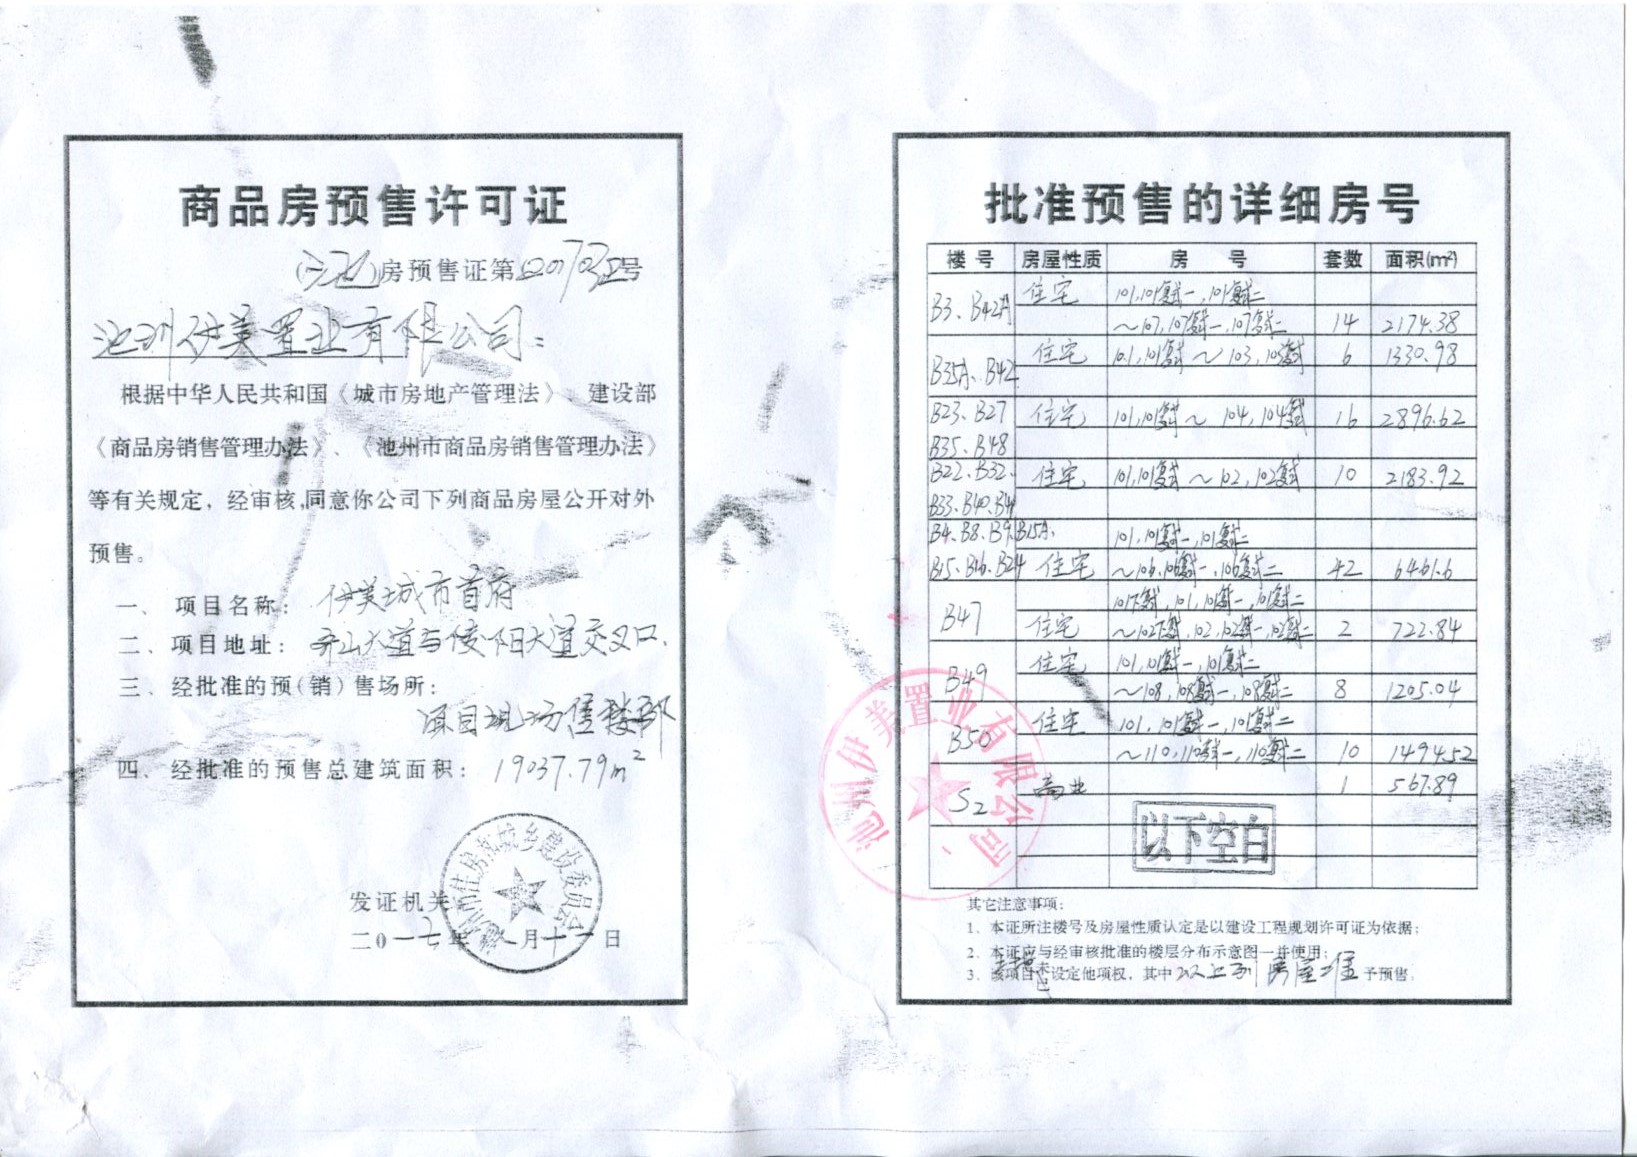 商品房预售许可证
房预售证第 号
池州伊美置业有限公司：
根据中华人民共和国《城市房地产管理法》、建设部
《商品房销售管理办法》、《池州市商品房销售管理办法》
等有关规定，经审核，同意你公司下列商品房屋公开对外
预售。
一、项目名称：伊美城市首府
二、项目地址：齐山大道与陵阳大道交叉口
三、经批准的预(销)售场所：
项目现场售楼部
四、经批准的预售总建筑面积：19037.79m²
住房和城乡建设委员会
发证机关
二0一七年 月十一日
批准预售的详细房号
楼号 房屋性质 房号 套数 面积(m²)
B3、B42A 住宅 101,101复式一,101复式二
～107,107复式一,107复式二 14 2174.38
B35A、B42 住宅 101,101复式～103,103复式 6 1330.98
B23、B27 住宅 101,101复式～104,104复式 16 2896.62
B35、B48
B22、B32、 住宅 101,101复式～102,102复式 10 2183.92
B33、B40、B41
B4、B8、B9、B15A、 101,101复式一,101复式二
B15、B16、B24 住宅 ～106,106复式一,106复式二 42 6461.6
B47 101下复式,101,101复式一,101复式二
住宅 ～102下复式,102,102复式一,102复式二 2 722.84
B49 住宅 101,101复式一,101复式二
～108,108复式一,108复式二 8 1205.04
B50 住宅 101,101复式一,101复式二
～110,110复式一,110复式二 10 1494.52
S2 商业 1 567.89
以下空白
池州伊美置业有限公司
其它注意事项：
1、本证所注楼号及房屋性质认定是以建设工程规划许可证为依据；
2、本证应与经审核批准的楼层分布示意图一并使用；
3、该项目 设定他项权，其中以上列房屋准予预售。